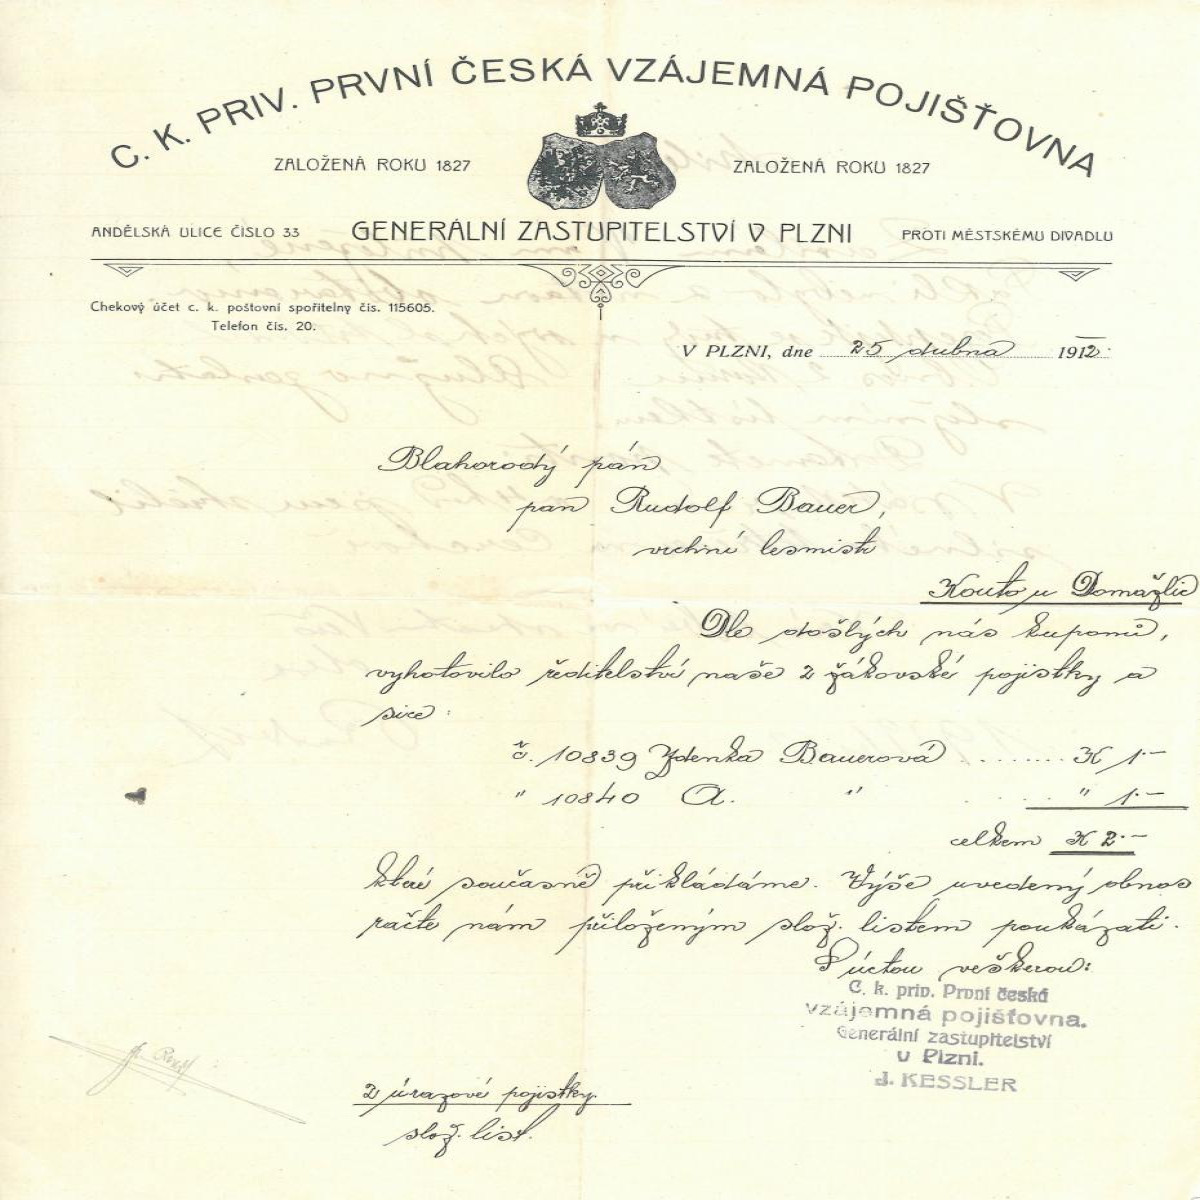 C. K. PRIV. PRVNÍ ČESKÁ VZÁJEMNÁ POJIŠŤOVNA
ZALOŽENÁ ROKU 1827 ZALOŽENÁ ROKU 1827
ANDĚLSKÁ ULICE ČÍSLO 33 GENERÁLNÍ ZASTUPITELSTVÍ V PLZNI PROTI MĚSTSKÉMU DIVADLU
Chekový účet c. k. poštovní spořitelny čís. 115605.
Telefon čís. 20.
V PLZNI, dne 25 dubna 1912.
Blahorodý pán
pan Rudolf Bauer,
vrchní lesmistr
Kouto u Domažlic
Dle došlých nás kuponů,
vyhotovilo ředitelství naše 2 žákovské pojistky a
sice:
č. 10839 Zdenka Bauerová ....... K 1.—
" 10840 A. " " 1.—
celkem K 2.—
které současně přikládáme. Výše uvedený obnos
račte nám přiloženým slož. listem poukázati.
S úctou veškerou:
C. k. priv. První česká
vzájemná pojišťovna.
Generální zastupitelství
v Plzni.
J. KESSLER
2 úrazové pojistky.
slož. list.